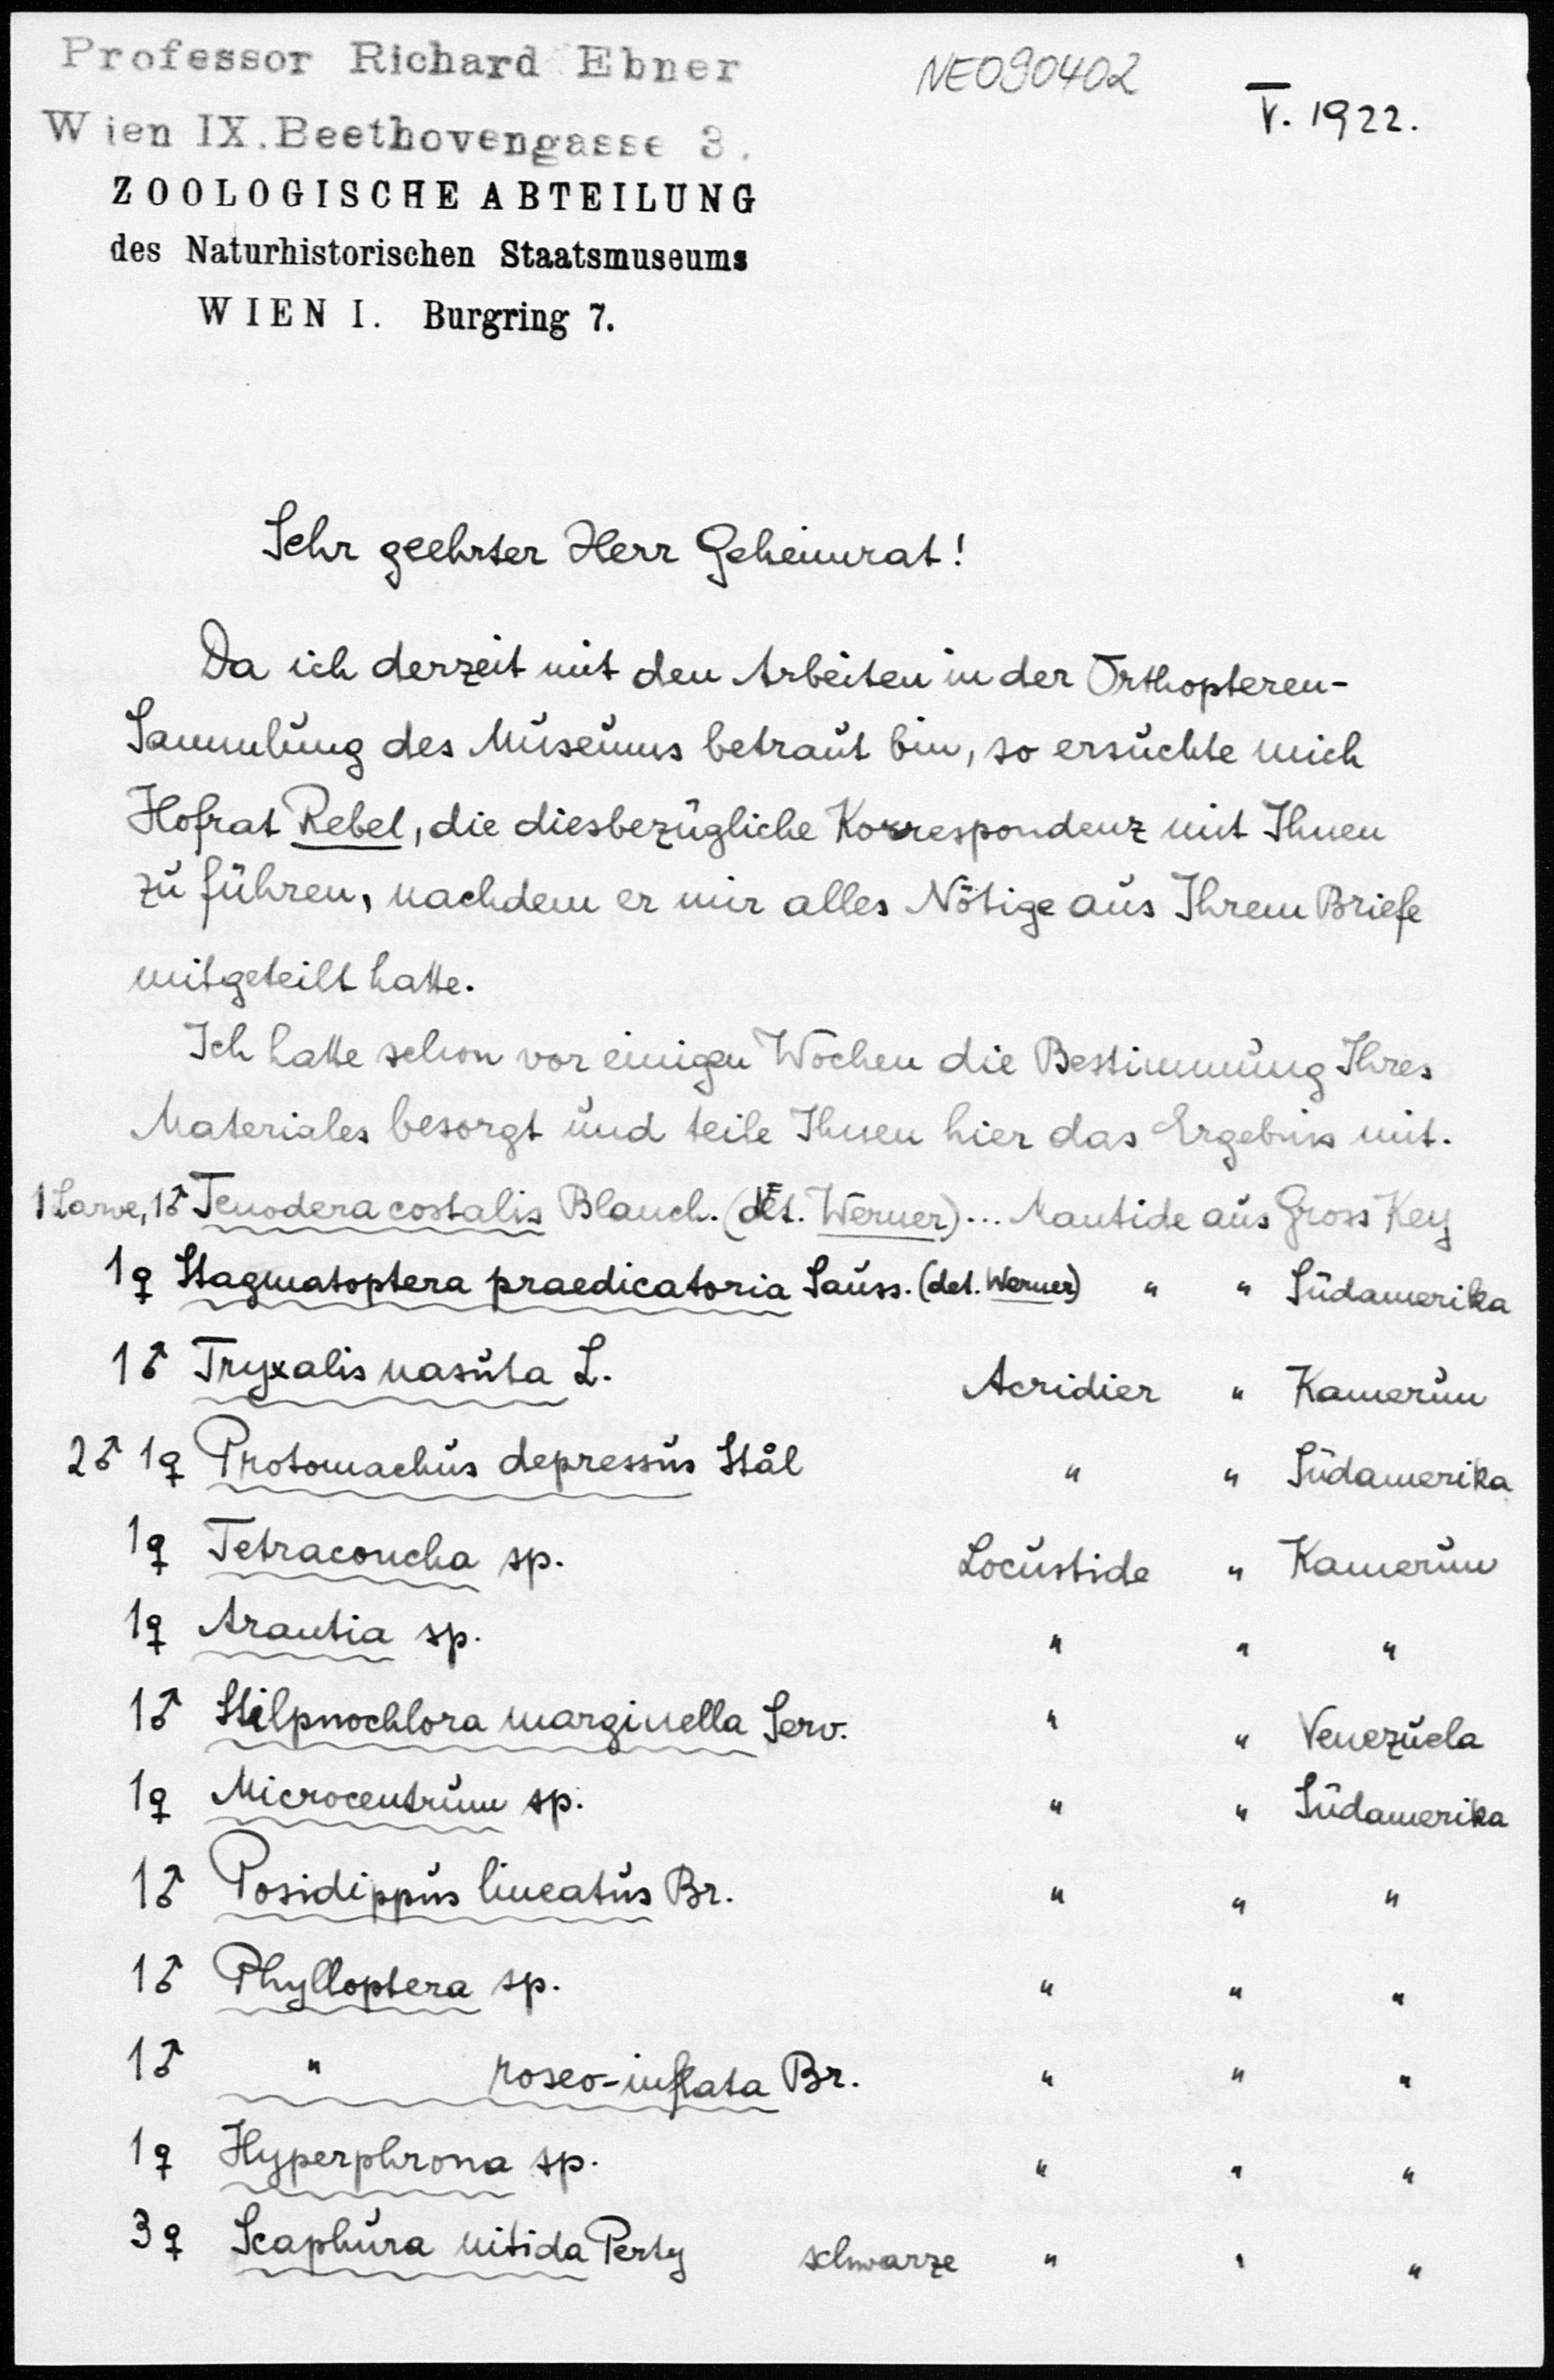 Professor Richard Ebner
Wien IX. Beethovengasse 3.
ZOOLOGISCHE ABTEILUNG
des Naturhistorischen Staatsmuseums
WIEN I. Burgring 7.
NE090402
V. 1922.
Sehr geehrter Herr Geheimrat!
Da ich derzeit mit den Arbeiten in der Orthopteren-
Sammlung des Museums betraut bin, so ersuchte mich
Hofrat Rebel, die diesbezügliche Korrespondenz mit Ihnen
zu führen, nachdem er mir alles Nötige aus Ihrem Briefe
mitgeteilt hatte.
Ich hatte schon vor einigen Wochen die Bestimmung Ihres
Materiales besorgt und teile Ihnen hier das Ergebnis mit.
1 Larve, 1♂ Tenodera costalis Blanch. (det. Werner)... Mantide aus Gross Key
1♀ Stagmatoptera praedicatoria Sauss. (det. Werner) " " Südamerika
1♂ Tryxalis nasuta L. Acridier " Kamerun
2♂ 1♀ Protomachus depressus Stål " " Südamerika
1♀ Tetraconcha sp. Locustide " Kamerun
1♀ Arantia sp. " " "
1♂ Stilpnochlora marginella Serv. " " Venezuela
1♀ Microcentrum sp. " " Südamerika
1♂ Posidippus lineatus Br. " " "
1♂ Phylloptera sp. " " "
1♂ " roseo-inflata Br. " " "
1♀ Hyperphrona sp. " " "
3♀ Scaphura nitida Perty schwarze " " "